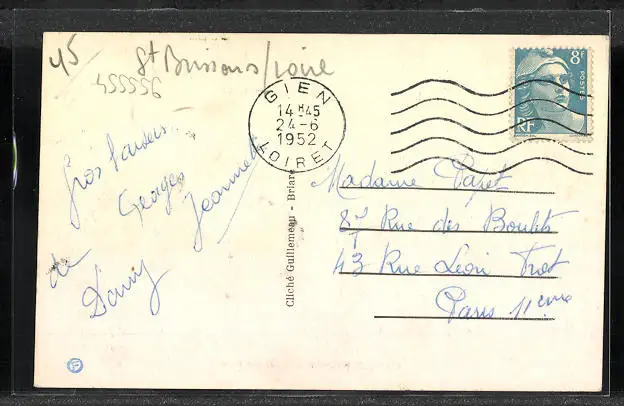 45
St Brisson s/Loire
455554
GIEN
14H45
24-6
1952
LOIRET
8F
POSTES
RF
Gros baisers
Georges
Jeannette
de
Dany
Cliché Guillemeau - Briare
Madame
Rue des
43 Rue Léon Frot
Paris 11ème